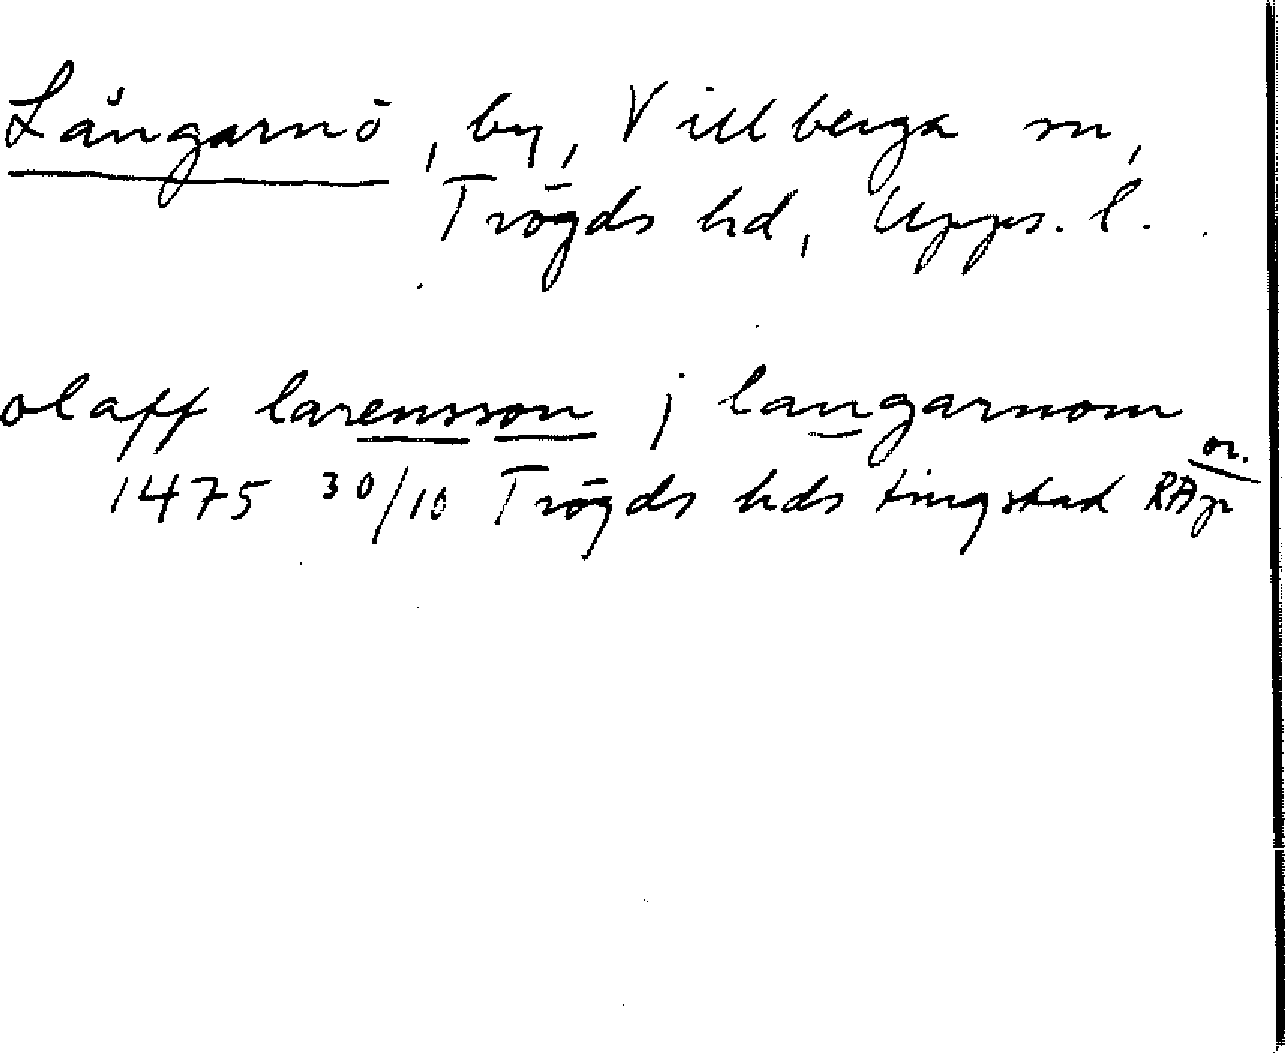 Långarnö, by, Villberga sn,
Trögds hd, Upps. l.
olaff larensson j langarnom
1475 30/10 Trögds hds tingstad RAp or.